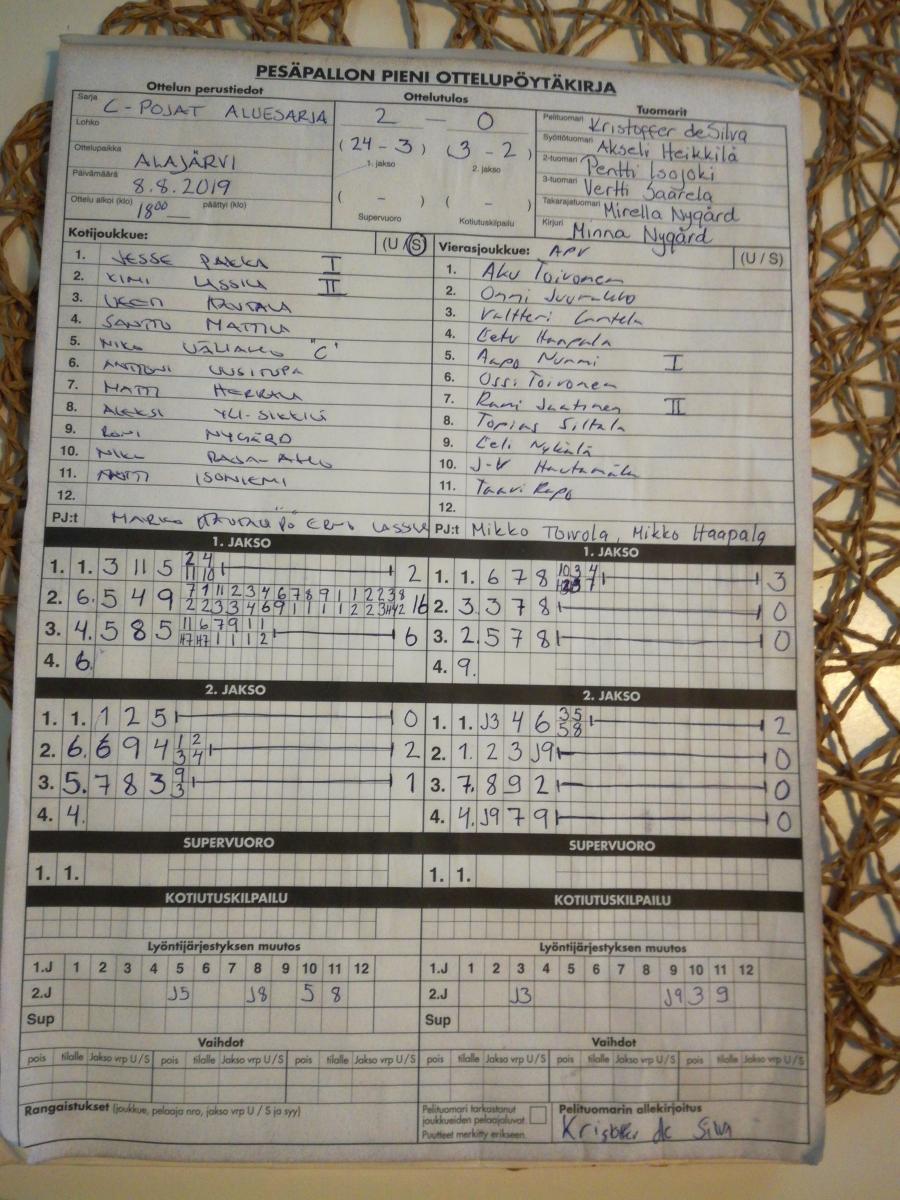 PESÄPALLON PIENI OTTELUPÖYTÄKIRJA
Ottelun perustiedot
Sarja C-POJAT ALUESARJA
Lohko
Ottelupaikka ALAJÄRVI
Päivämäärä 8.8.2019
Ottelu alkoi (klo) 18⁰⁰ päättyi (klo)
Ottelutulos
2 — 0
(24 - 3) (3 - 2)
1. jakso 2. jakso
( - ) ( - )
Supervuoro Kotiutuskilpailu
Tuomarit
Pelituomari Kristoffer de Silva
Syöttötuomari Akseli Heikkilä
2-tuomari Pentti Isojoki
3-tuomari Vertti Saarela
Takarajatuomari Mirella Nygård
Kirjuri Minna Nygård
Kotijoukkue: (U / S)
1. JESSE PAKKA I
2. KIMI LASSILA II
3. RAUTALA
4. SANTTU MATTILA
5. NIKO VÄLIAHO "C"
6. ANTTONI UUSITUPA
7. MATTI HERRALA
8. ALEKSI YLI-SIKKILÄ
9. RONI NYGÅRD
10. RAJA-AHO
11. ISONIEMI
12.
PJ:t MARKO
Vierasjoukkue: APV (U / S)
1. Aku Toivonen
2. Onni
3. Valtteri Lantela
4. Eetu Haapala
5. Aapo Nummi I
6. Ossi Toivonen
7. Rami Saatinen II
8. Topias Siltala
9. Eeli Nykälä
10. J-V Hautamäki
11. Taavi Repo
12.
PJ:t Mikko Toivola, Mikko Haapala
1. JAKSO
1. 1. 3 11 5 2 4 2
11 10
2. 6. 5 4 9 7 1 11 2 3 4 6 7 8 9 1 1 2 2 3 8 16
3. 4. 5 8 5 11 6 7 9 1 1 6
4. 6.
1. JAKSO
1. 1. 6 7 8 10 3 4 3
2. 3. 3 7 8 0
3. 2. 5 7 8 0
4. 9.
2. JAKSO
1. 1. 1 2 5 0
2. 6. 6 9 4 1 2 2
3 4
3. 5. 7 8 3 9 1
3
4. 4.
2. JAKSO
1. 1. J3 4 6 3 5 2
5 8
2. 1. 2 3 J9 0
3. 7. 8 9 2 0
4. 4. J9 7 9 0
SUPERVUORO
1. 1.
SUPERVUORO
1. 1.
KOTIUTUSKILPAILU
KOTIUTUSKILPAILU
Lyöntijärjestyksen muutos
1.J 1 2 3 4 5 6 7 8 9 10 11 12
2.J J5 J8 5 8
Sup
Lyöntijärjestyksen muutos
1.J 1 2 3 4 5 6 7 8 9 10 11 12
2.J J3 J9 3 9
Sup
Vaihdot
pois tilalle Jakso vrp U/S pois tilalle Jakso vrp U/S pois tilalle Jakso vrp U/S
Vaihdot
pois tilalle Jakso vrp U/S pois tilalle Jakso vrp U/S pois tilalle Jakso vrp U/S
Rangaistukset (joukkue, pelaaja nro, jakso vrp U / S ja syy)
Pelituomari tarkastanut
joukkueiden pelaajaluvat
Puutteet merkitty erikseen.
Pelituomarin allekirjoitus
Kristoffer de Silva